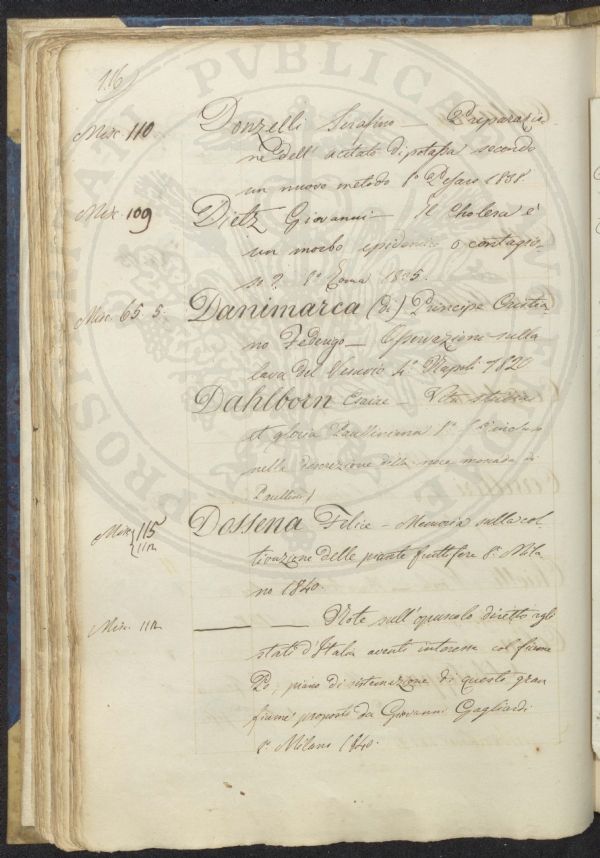 116
Misc. 110 Donzelli Serafino — Preparazio
ne dell' acetato di potassa secondo
un nuovo metodo 8.° Pesaro 1838
Misc. 109 Dietz Giovanni — Il Cholera è
un morbo epidemico o contagio-
so? 8.° Roma 1835.
Misc. 65. 5. Danimarca (di) Principe Cristia
no Federigo — Osservazioni sulla
lava del Vesuvio 4.° Napoli 1820
Dahlborn — Vita studia
et gloria 8.°
nella descrizione della
Misc. 115 Dossena Felice — Memoria sulla col
112
tivazione delle piante fruttifere 8.° Mila
no 1840.
Misc. 112 ——— Note sull'opuscolo diretto agli
stati d'Italia aventi interesse col fiume
Po; piano di sistemazione di questo gran
fiume proposto da Giovanni Gagliardi
8.° Milano 1840.
PROSPERI PVBLICAE